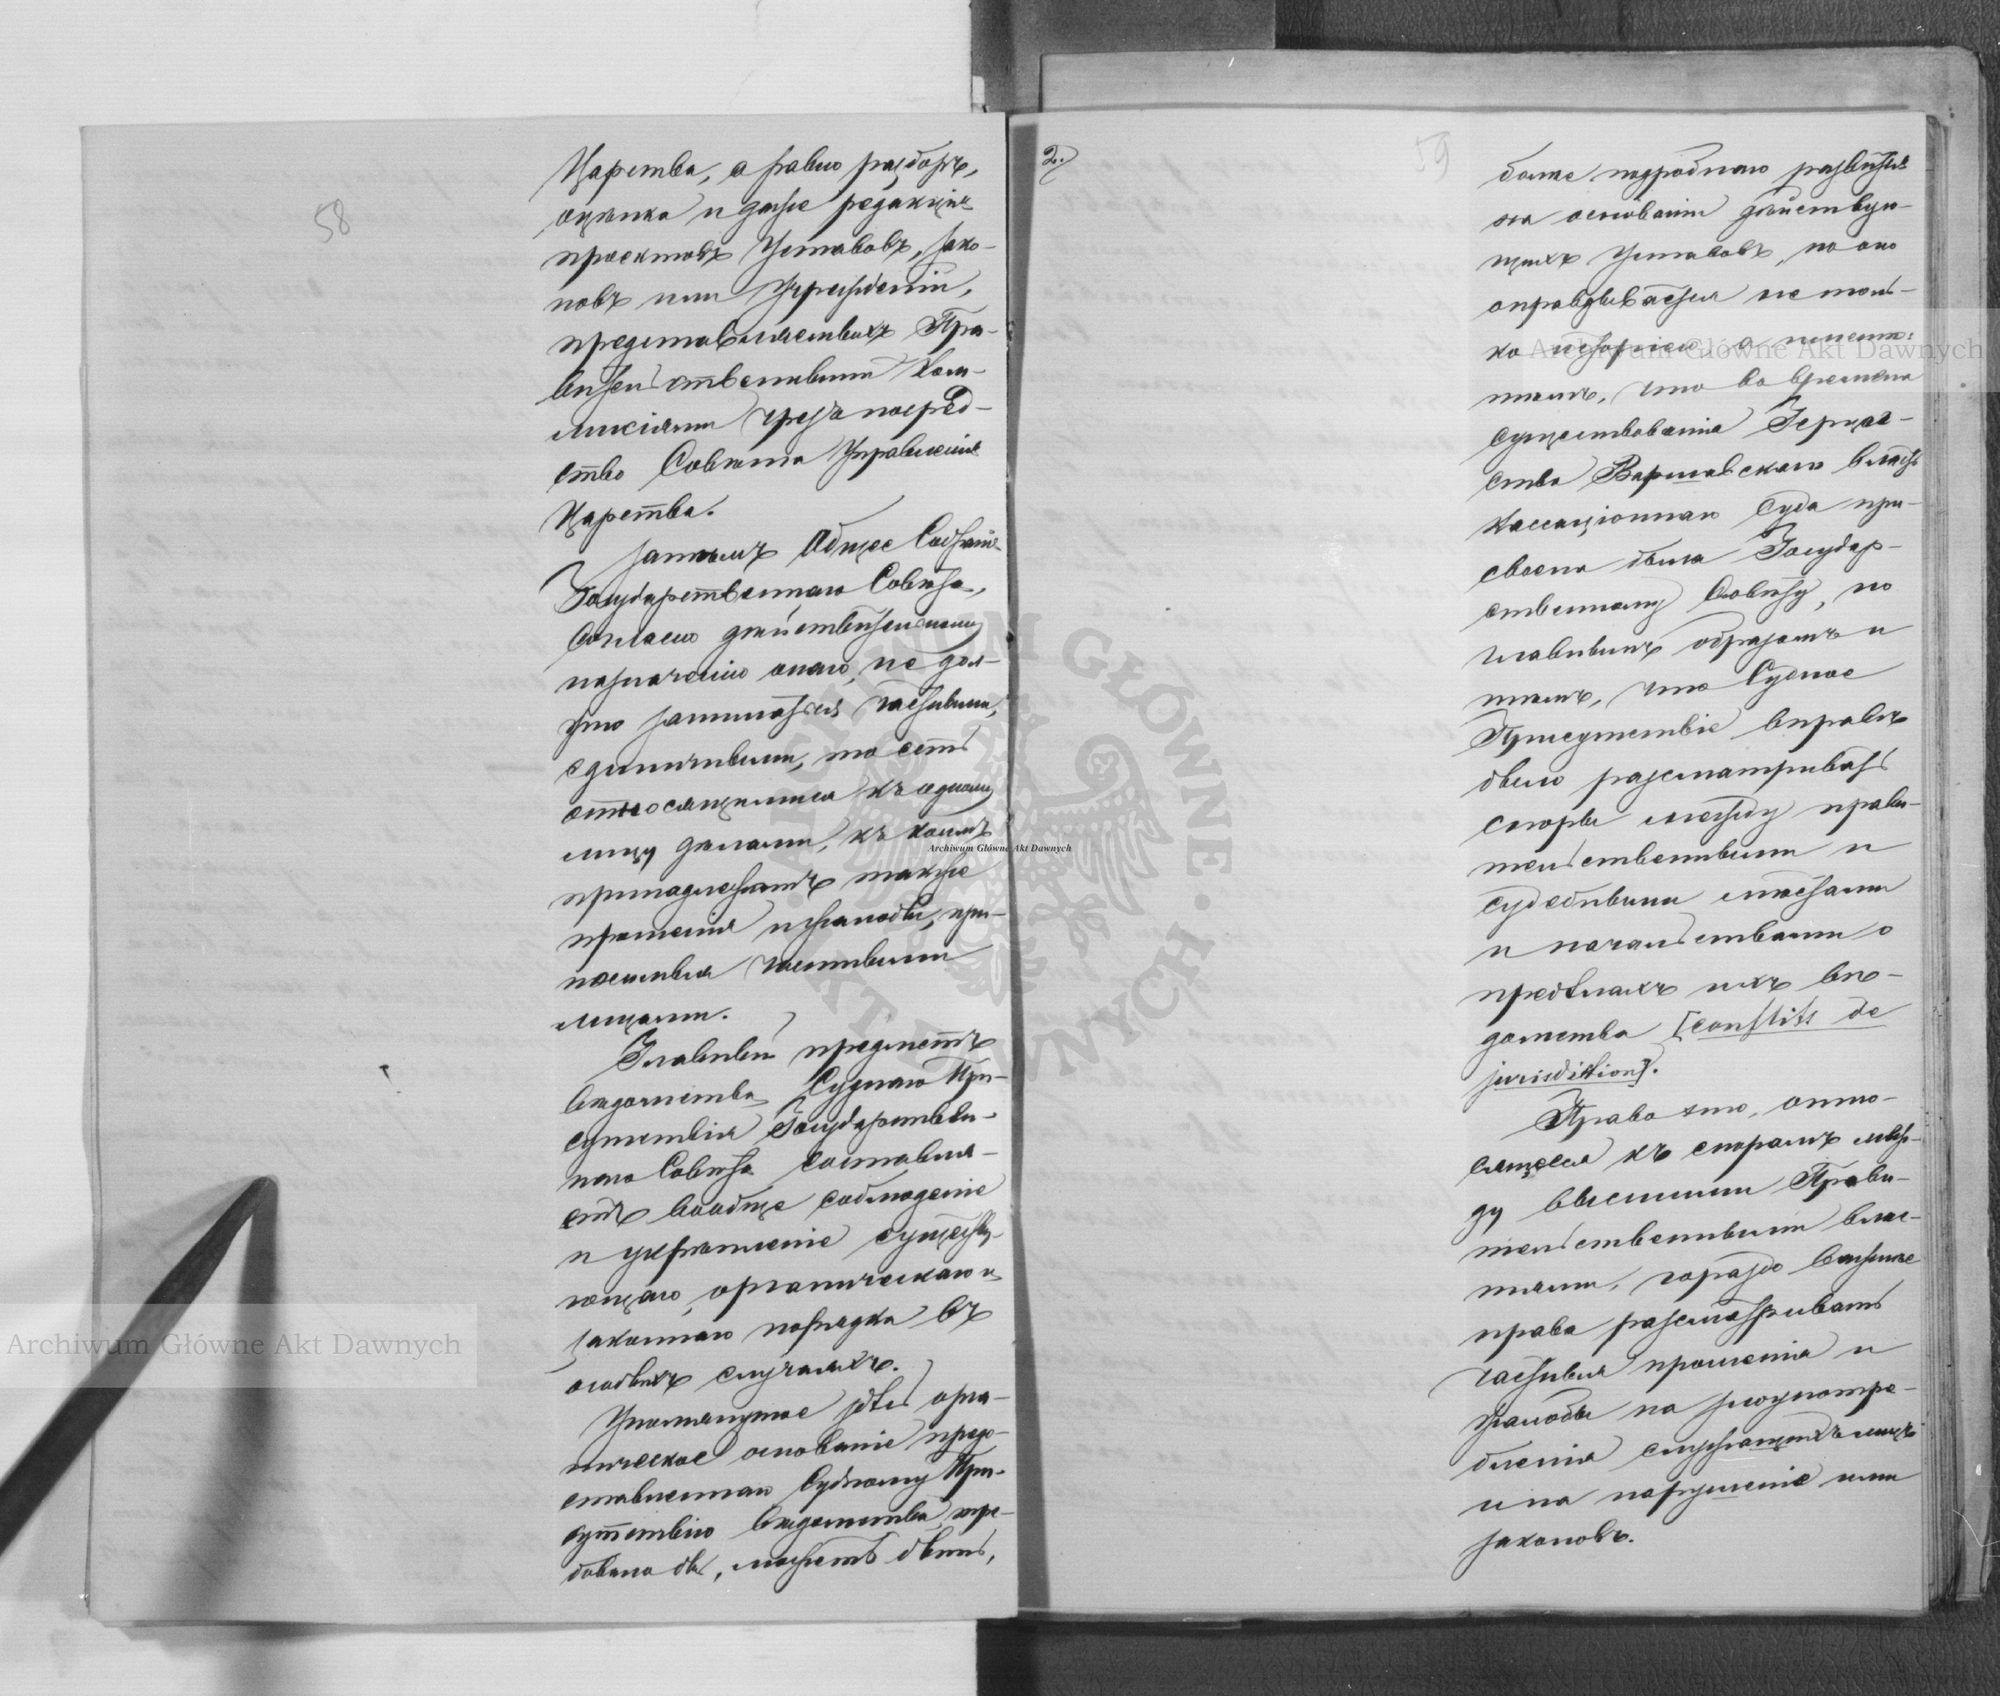 58
Царства, а равно разборъ,
оцѣнка и даже редакція
проектовъ Уставовъ, зако-
новъ или Учрежденій,
представляемыхъ Пра-
вительственными Ком-
мисіями чрезъ посред-
ство Совѣта Управленія
Царства.
Затѣмъ Общее Собраніе
Государственнаго Совѣта,
согласно дѣйствительному
назначенію онаго, не дол-
жно заниматься частными,
единичными, то есть
относящимися къ одному
лицу дѣлами, къ коимъ
принадлежатъ также
прошенія и жалобы, при-
носимыя частными
лицами.
Главный предметъ
вѣдомства Суднаго При-
сутствія Государствен-
наго Совѣта составля-
етъ вообще соблюденіе
и укрѣпленіе существу-
ющаго, органическаго и
законнаго порядка въ
особыхъ случаяхъ.
Упомянутое здѣсь орга-
ническое основаніе предо-
ставленнаго Судному При-
сутствію вѣдомства, тре-
бовало бы, можетъ быть,
2.)
59
болѣе подробнаго развитія
на основаніи дѣйствую-
щихъ Уставовъ, но оно
оправдывается не толь-
ко исторіею, а именно:
тѣмъ, что во времена
существованія Герцог-
ства Варшавскаго власть
Кассаціоннаго Суда при-
своена была Государ-
ственному Совѣту, но
главнымъ образомъ и
тѣмъ, что Судное
Присутствіе вправѣ
было разсматривать
споры между прави-
тельственными и
судебными мѣстами
и начальствами о
предѣлахъ ихъ вѣ-
домства [conflits de
jurisdiction].
Право это, отно-
сящееся къ спорамъ меж-
ду высшими Прави-
тельственными влас-
тями, гораздо важнѣе
права разсматривать
частныя прошенія и
жалобы на злоупотре-
бленія служащихъ лицъ
и на нарушеніе ими
законовъ.
Archiwum Główne Akt Dawnych
Archiwum Główne Akt Dawnych
Archiwum Główne Akt Dawnych
ARCHIWUM GŁÓWNE AKT DAWNYCH